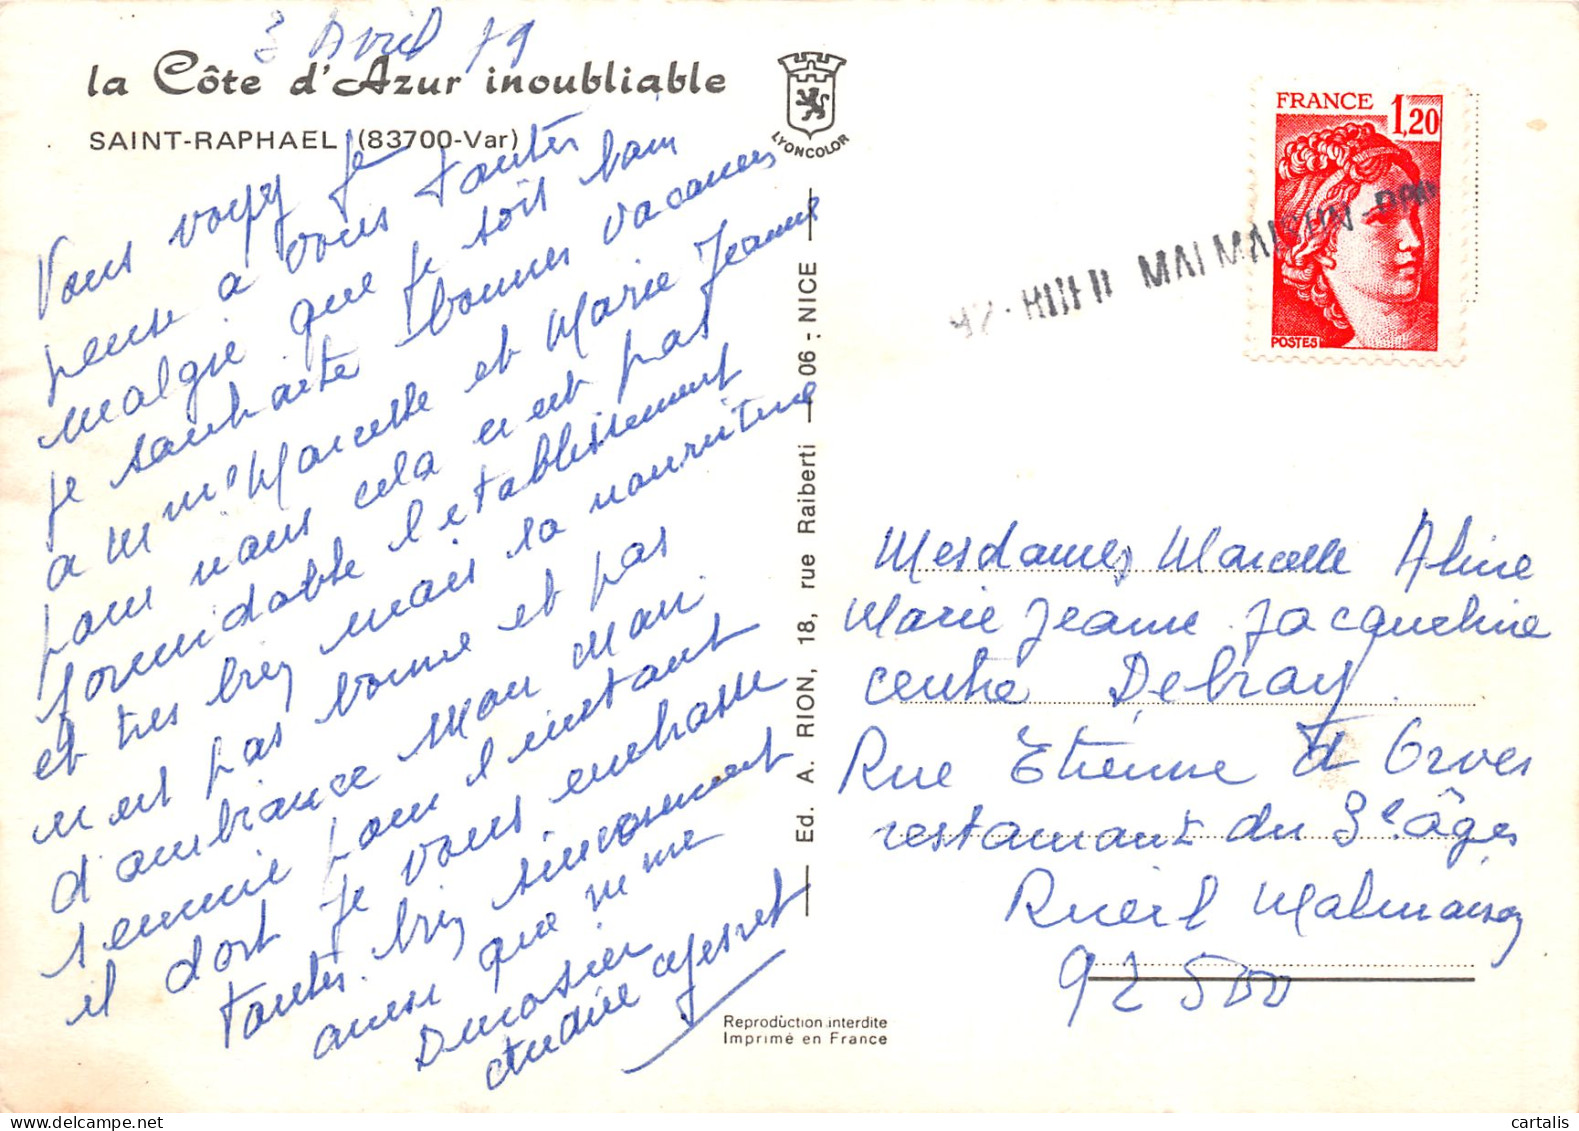 3 Avril 79
la Côte d'Azur inoubliable
SAINT-RAPHAEL (83700-Var)
LYONCOLOR
Vous voyez je
pense a vous toutes
malgre que je soit loin
je souhaite bonnes vacances
a Mme Marcelle et Marie Jeanne
pour nous cela n est pas
formidable l etablissement
et tres bien mais la nourriture
n est pas bonne et pas
d ambiance Mon Mari
s ennuie pour l instant
il dort je vous embrasse
toutes bien sincerement
ainsi que Mme
Dumosier
Andrée
Ed. A. RION, 18, rue Raiberti - 06 - NICE
Reproduction interdite
Imprimé en France
FRANCE
1,20
POSTES
MALMAISON
Mesdames Marcelle Aline
Marie Jeanne Jacqueline
centre Debray
Rue Etienne d Orves
restaurant du 3e âges
Rueil Malmaison
92500
cartalis | delcampe.net